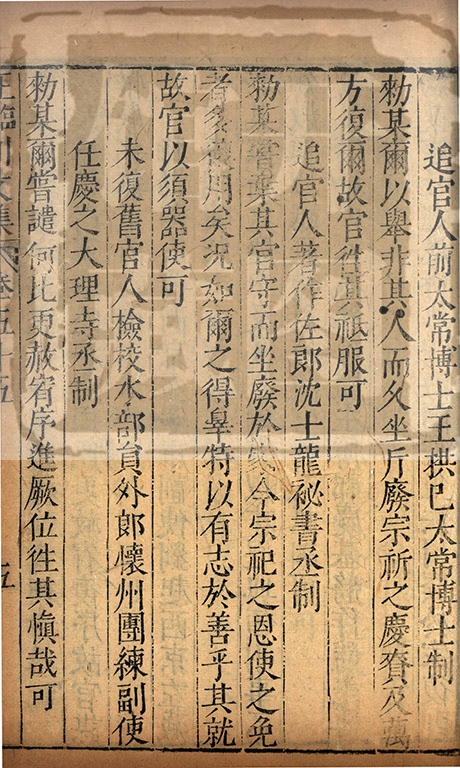 追官人前太常博士王拱巳太常博士制
勑某爾以舉非其人而久坐斤廢宗祈之慶賚及萬
方復爾故官徃其祗服可
追官人著作佐郎沈士龍祕書丞制
勑某嘗棄其官守而坐廢於今宗祀之恩使之免
者多復用矣況如爾之得辠特以有志於善乎其就
故官以須器使可
未復舊官人檢校水部員外郎懷州團練副使
任慶之大理寺丞制
勑某爾嘗譴何比更赦宥序進厥位徃其愼哉可
王臨川文集卷五十五
五